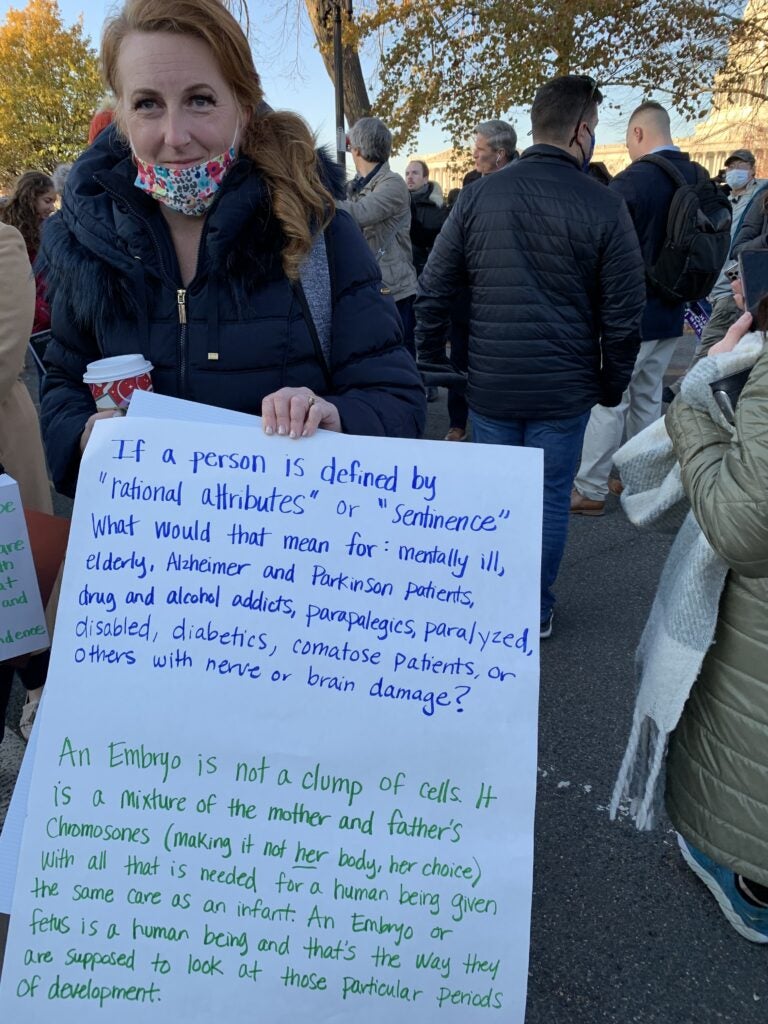 If a person is defined by
"rational attributes" or "Sentinence"
What would that mean for: mentally ill,
elderly, Alzheimer and Parkinson patients,
drug and alcohol addicts, parapalegics, paralyzed,
disabled, diabetics, comatose patients, or
others with nerve or brain damage?
An Embryo is not a clump of cells. It
is a mixture of the mother and father's
Chromosones (making it not her body, her choice)
with all that is needed for a human being given
the same care as an infant. An Embryo or
fetus is a human being and that's the way they
are supposed to look at those particular periods
of development.
and